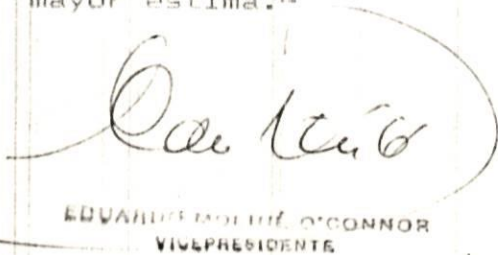 mayor estima.-
EDUARDO MOLINÉ O'CONNOR
VICEPRESIDENTE